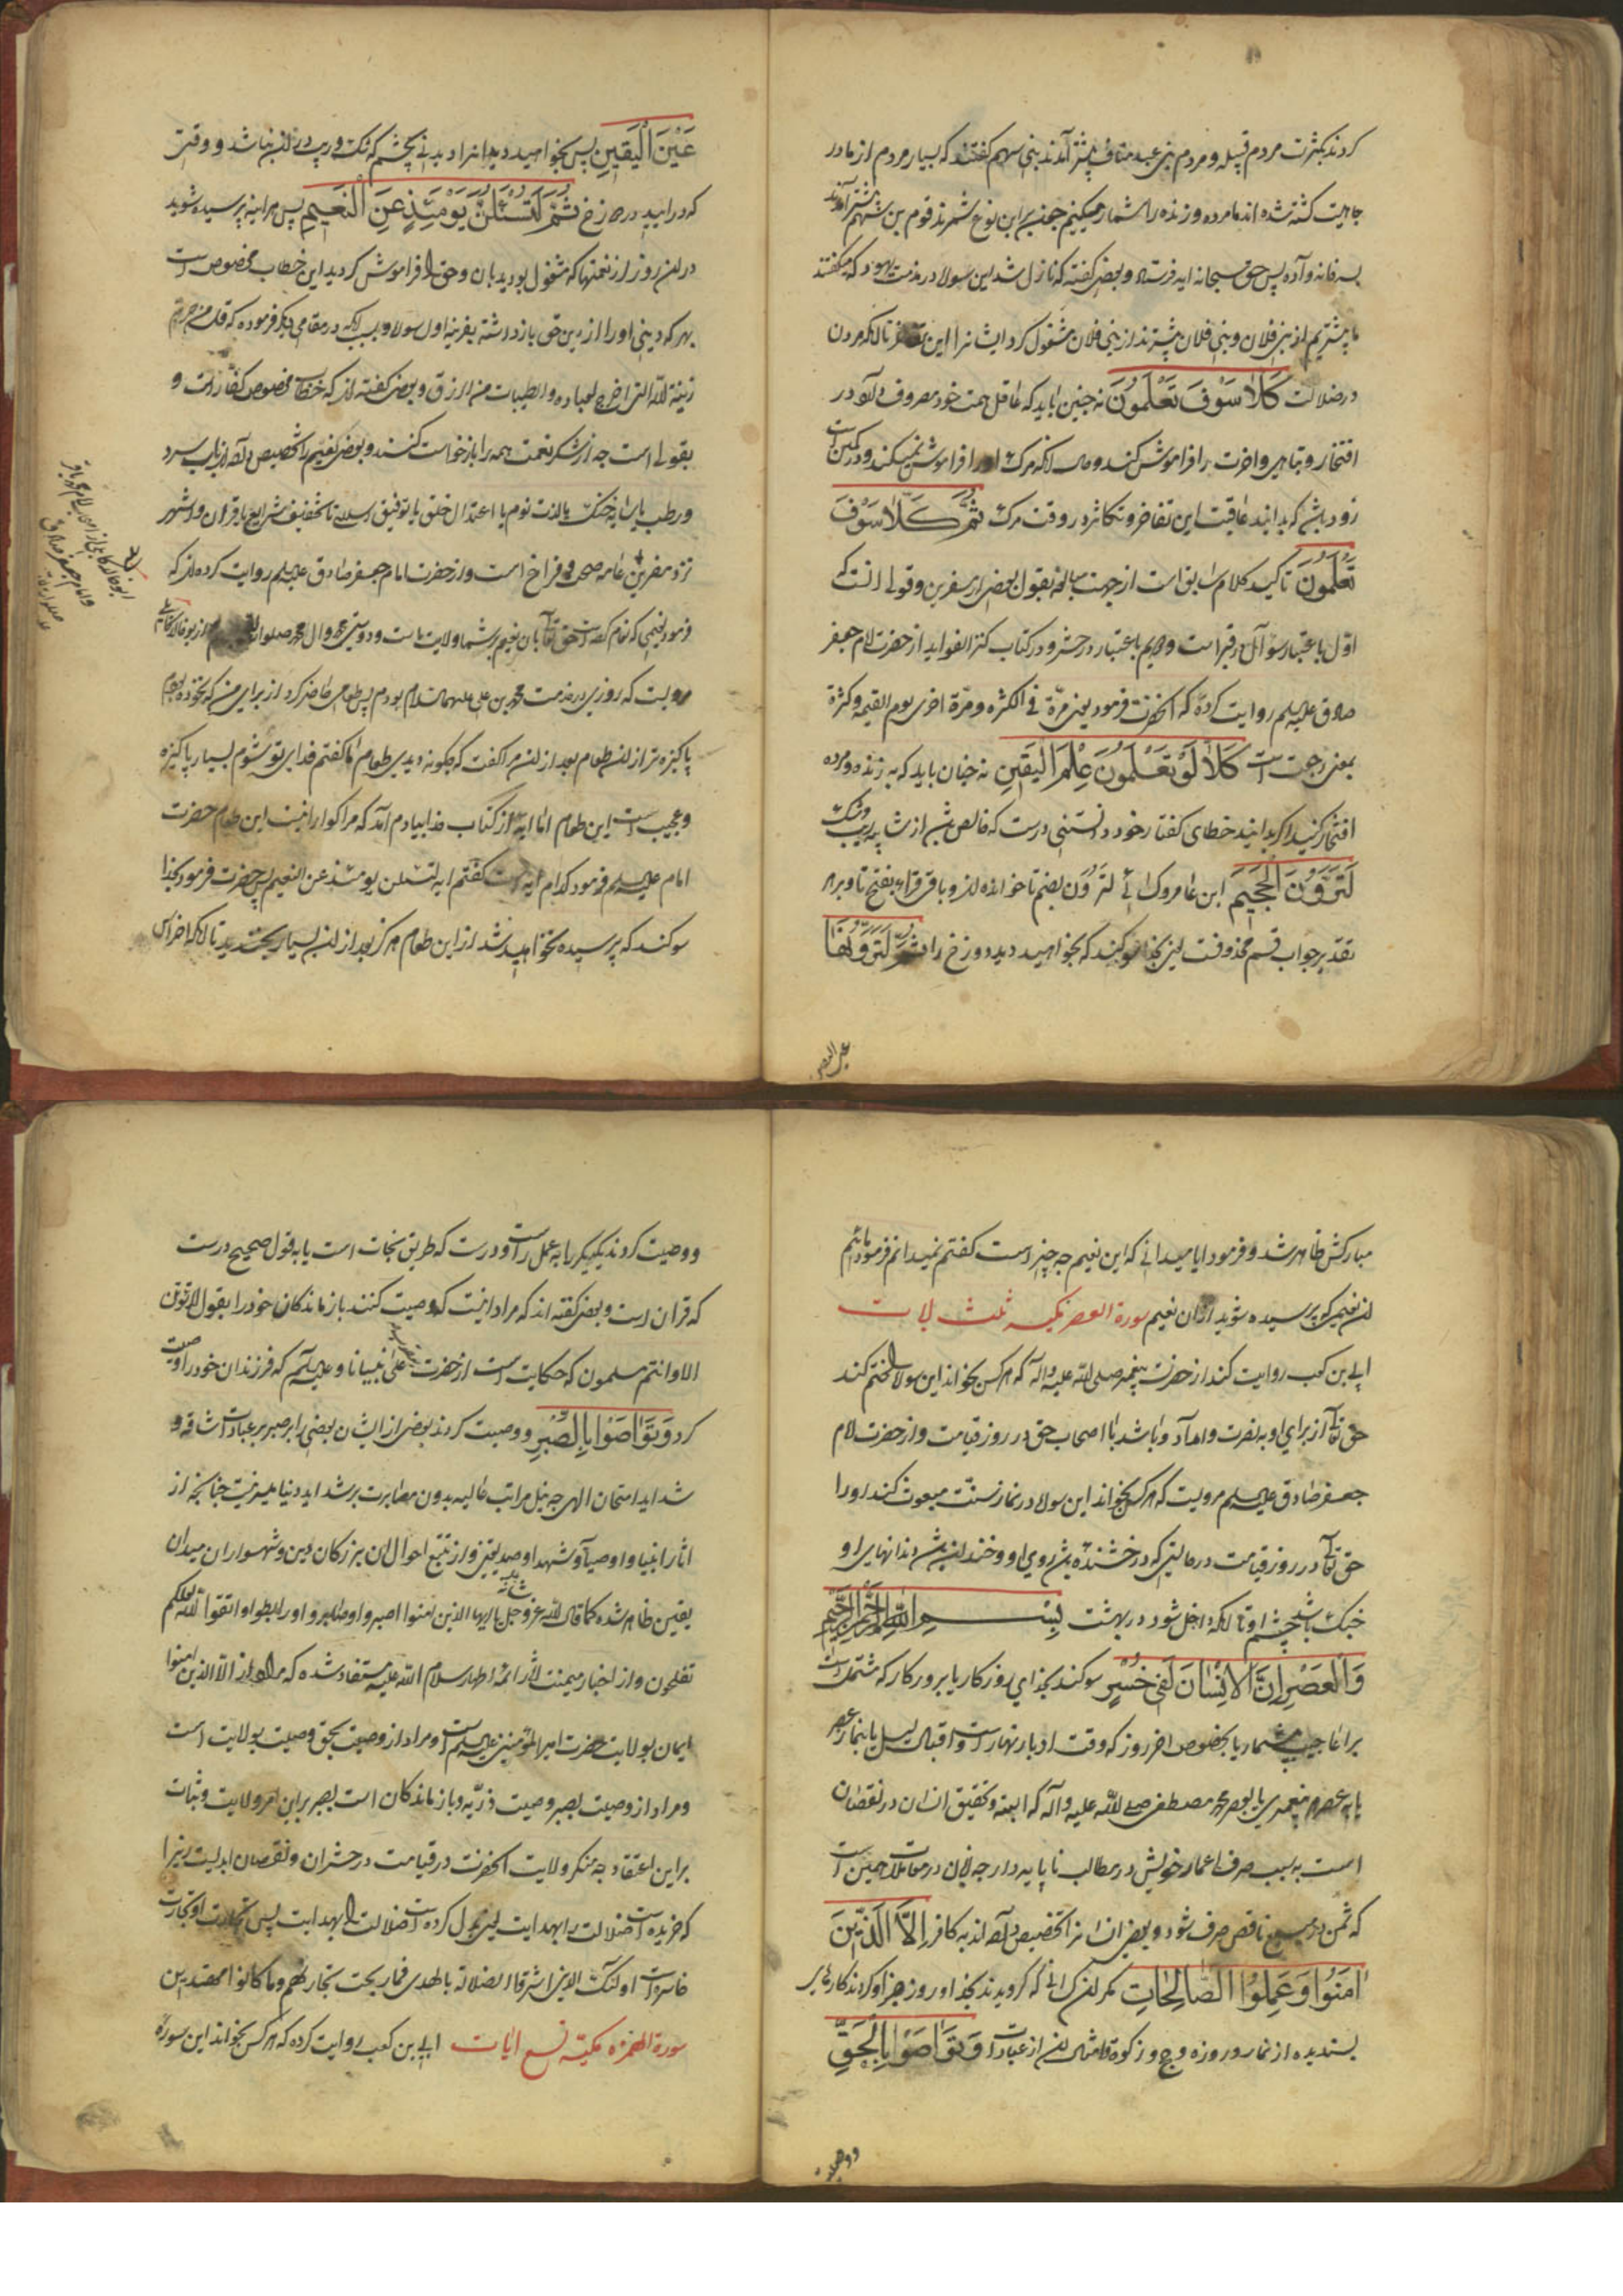 کردند بکثرت مردم قبیله و مردم بنی عبد مناف بیشتر آمدند بنی سهم گفتند که بسیار مردم از ما در
جاهلیت کشته شده اند ما مرده و زنده را شمار میکنیم چون براین نوع شمردند قوم بن سهم بیشتر آمدند
بسه خانه و آده پس حق سبحانه ایه فرستاد و بعضی گفته که نازل شد این سوره در مذمت یهود که میگفتند
ما بیشتریم از بنی فلان و بنی فلان بیشترند از بنی فلان مشغول کرد ایشانرا این تا انکه مردن
در ضلالت كَلّا سَوْفَ تَعْلَمُونَ نه چنین باید که عاقل همت خود مصروف دارد در
افتخار و تباهی و اخرت را فراموش کند و حال انکه مرک او را فراموش نمیکند و در کمین است
زود باشد که بدانید عاقبت این تفاخر و تکاثر در وقت مرک ثُمَّ كَلّا سَوْفَ
تَعْلَمُونَ تاکید کلام سابق است از جهت مبالغه بقول بعضی از مفسرین و قولی انست که
اوّل باعتبار سؤال در قبر است و دویم باعتبار در حشر و در کتاب کنز الفواید از حضرت امام جعفر
صادق علیه السلم روایت کرده که انحضرت فرمود یعنی مرّة فی الکرّه و مرّة اخری یوم القیمه و کرّة
بمعنی رجعت است كَلّا لَوْ تَعْلَمُونَ عِلْمَ الْيَقينِ نه چنان باید که به زنده و مرده
افتخار کنید اکر بدانید خطای کفتار خود دانستنی درست که خالص باشد از شایبه ریب و شک
لَتَرَوُنَّ الْجَحيمَ ابن عامر و کسائی لترون بضم تا خوانده اند و باقی قراء بفتح تا و بر هر
تقدیر جواب قسم محذوفست یعنی بخدا سوکند که بخواهید دید دوزخ را ثُمَّ لَتَرَوُنَّها
عین الیقین
عَيْنَ الْيَقينِ پس بخواهید دید انرا دیدنی بچشم که شک و ریب در ان نباشد و وقتی
که درایید در دوزخ ثُمَّ لَتُسْئَلُنَّ يَوْمَئِذٍ عَنِ النَّعيمِ پس هراینه پرسیده شوید
در ان روز از نعمتها که مشغول بودید بان و حق را فراموش کردید این خطاب مخصوص است
بهر که دینی او را از دین حق بازداشته بقرینه اول سوره و بسبب انکه در مقامی دیکر فرموده که قل من حرم
زینة الله التی اخرج لعباده و الطیبات من الرزق و بعضی گفته اند که خطاب مخصوص کفار است و
بقولی است چه از شکر نعمت همه را بازخواست کنند و بعضی نعیم را تخصیص داده اند باب سرد
و رطب یا سایه خنک یا لذت نوم یا اعتدال خلق یا توفیق اسلام یا تخفیف شرایع یا قران و اشهر
نزد مفسرین عامه صحت و فراخ است و از حضرت امام جعفر صادق علیه السلم روایت کرده اند که
فرمود نعیمی که انعام کرده است حق تعالی بان نعیم بر شما ولایت ماست و دوستی محمد و ال محمد صلوات الله از ابو خالد کابلی
مرویست که روزی در خدمت محمد بن علی علیهما السلام بودم پس طعامی حاضر کرد از برای من که نخورده بودم
پاکیزه تر از ان طعام بعد از ان مرا گفت که چکونه دیدی طعام ما گفتم فدای تو شوم بسیار پاکیزه
و عجیب است این طعام اما ایه از کتاب خدا بیادم آمد که مرا کوارا نیست این طعام حضرت
امام علیه السلم فرمود کدام ایه است گفتم ایه لتسئلن یومئذ عن النعیم پس حضرت فرمود بخدا
سوکند که پرسیده نخواهید شد از این طعام هرکز بعد از ان بسیار بخندید تا انکه اضراس
ابو خالد کابلی از اصحاب امام محمد باقر
و امام جعفر صادق
مبارکش ظاهر شد و فرمود ایا میدانی که این نعیم چه چیز است کفتم نمیدانم فرمود مائیم
ان نعیم که پرسیده شوید از ان نعیم سورة العصر مکیه ثلث ایات
ابی بن کعب روایت کند از حضرت پیغمبر صلی الله علیه و اله که هرکس بخواند این سوره را ختم کند
حق تعالی از برای او به نصرت و امداد و باشد با اصحاب حق در روز قیامت و از حضرت امام
جعفر صادق علیه السلم مرویست که هرکس بخواند این سوره در نماز سنت مبعوث کند او را
حق تعالی در روز قیامت در حالتی که درخشنده باشد روی او و خندان باشد دندانهای او
خنک باشد چشم او تا انکه داخل شود در بهشت بِسْمِ اللهِ الرَّحْمنِ الرَّحيمِ
وَالْعَصْرِ اِنَّ الْاِنْسانَ لَفي خُسْرٍ سوکند بخدای روزکار یا بروزکار که مشتمل است
بر اعاجیب بیشمار یا بخصوص اخر روز که وقت ادبار نهار است و اقبال لیل یا بنماز عصر
یا به عصر هر پیغمبری یا بعصر محمد مصطفی صلی الله علیه و آله که البته و تحقیق انسان در نقصان
است به سبب صرف اعمار خویش در مطالب ناپایدار چه انان در معاملات چنین است
که ثمن در مبیع ناقص صرف شود و بعضی انسانرا تخصیص داده اند به کافر اِلّا الَّذينَ
امَنُوا وَعَمِلُوا الصّالِحاتِ مکر ان کسانی که کرویدند بخدا و روز جزا و کردند کارهای
پسندیده از نماز و روزه و حج و زکوة و امثال ان از عبادات وَتَواصَوْا بِالْحَقِّ
و وصیت
و وصیت کردند یکدیکر را به عمل راست و درست که طریق نجات است یا به قول صحیح درست
که قران است و بعضی کفته اند که مراد انست که وصیت کنند بازماندکان خود را بقول لاتموتن
الا وانتم مسلمون که حکایت است از حضرت علی نبینا و علیه السلم که فرزندان خود را وصیت
کرد وَتَواصَوْا بِالصَّبْرِ و وصیت کردند بعضی از ایشان بعضی را بر صبر بر عبادات شاقه و
شداید امتحان الهی چه نیل مراتب عالیه بدون مصابرت بر شداید دنیا میسر نیست چنانچه از
اثار انبیا و اوصیا و شهدا و صدیقین و از تتبع احوال ان بزرکان دین و شهسواران میدان
یقین ظاهر شده کما قال الله عز و جل یا ایها الذین امنوا اصبروا و صابروا و رابطوا واتقوا الله لعلکم
تفلحون و از اخبار میمنت اثار ائمه اطهار سلام الله علیهم مستفاد شده که مراد از الا الذین امنوا
ایمان بولایت حضرت امیر المؤمنین علیه السلم است و مراد از وصیت بحق وصیت بولایت است
و مراد از وصیت بصبر وصیت ذریه و بازماندکان است بصبر بر این امر ولایت و ثبات
بر این اعتقاد چه منکر ولایت انحضرت در قیامت در خسران و نقصان ابدیست زیرا
که خریده است ضلالت را بهدایت یعنی بدل کرده است ضلالت را بهدایت پس تجارت او تجارت
خاسره است اولئک الذین اشتروا الضلالة بالهدی فما ربحت تجارتهم وما کانوا مهتدین
سورة الهمزه مکیّة تسع ایات ابی بن کعب روایت کرده که هرکس بخواند این سوره